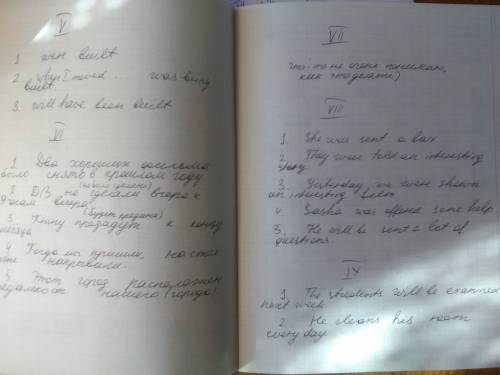 V
1 were built
2 when I moved ... was being
built.
3. will have been built
VI
1. Два хороших фильма
было снято в прошлом году
(было сделано)
2 Д/З не сделали вчера к
вчера
(будет продана)
3. Книгу продадут к концу
4 Когда мы пришли, на стол
уже накрывали.
5 Этот город расположен
недалеко от нашего (города).
VII
что-то не очень понимаю,
как это делать)
VIII
1. She was sent a box
2. They were told an interesting
story
3. Yesterday we were shown
an interesting film
4. Sasha was offered some help
5. He will be sent a lot of
questions.
IX
1. The students will be examined
next week
2. He cleans his room
every day